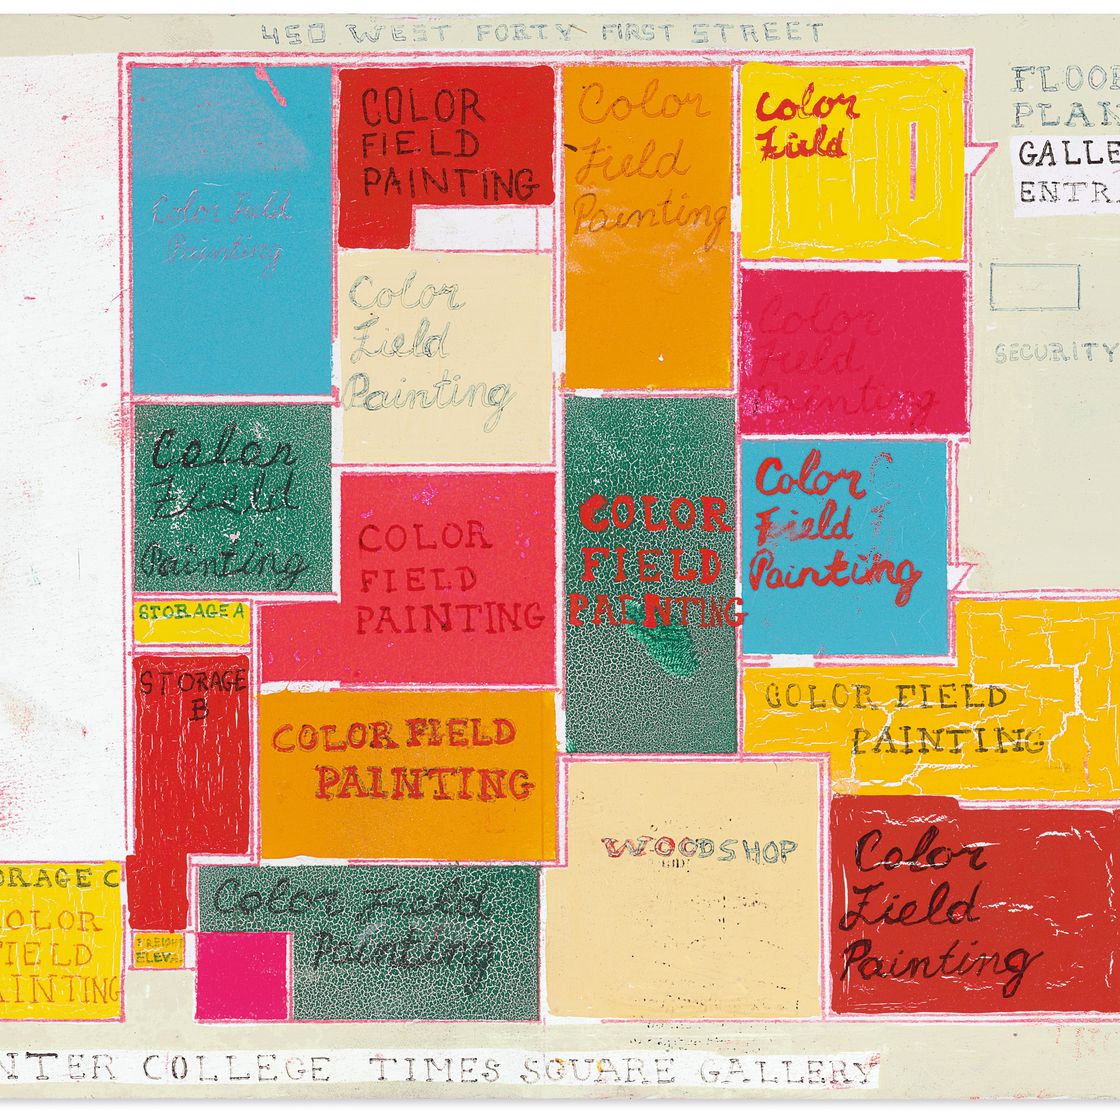 450 WEST FORTY FIRST STREET
FLOO
PLAN
GALLE
ENTR
Color Field
Painting
COLOR
FIELD
PAINTING
Color
Field
Painting
Color
Field
Color
Field
Painting
Color
Field
Painting
SECURITY
Color
Field
Painting
COLOR
FIELD
PAINTING
COLOR
FIELD
PAINTING
Color
Field
Painting
STORAGE A
STORAGE
B
COLOR FIELD
PAINTING
COLOR FIELD
PAINTING
WOODSHOP
Color
Field
Painting
ORAGE C
OLOR
IELD
AINTING
FREIGHT
ELEVA
Color Field
Painting
NTER COLLEGE TIMES SQUARE GALLERY